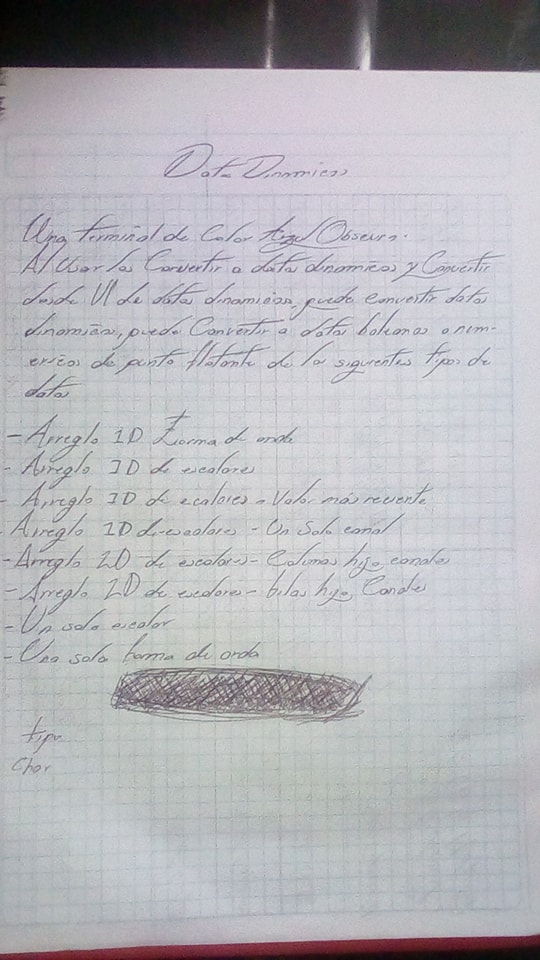 Datos Dinamicos
Una terminal de Color Azul Obscuro.
Al Usar los Convertir a datos dinamicos y Convertir
desde VI de datos dinamicos, puede convertir datos
dinamicos, puede Convertir a datos boleanos o num-
ericos de punto flotante de los siguientes tipos de
datos
- Arreglo 1D forma de onda
- Arreglo 1D de escalores
- Arreglo 1D de ecalores - Valor más reciente
- Arreglo 1D de escalores - Un Solo canal
- Arreglo 2D de escalores - Columnas hijo canales
- Arreglo 2D de escalores - filas hijo Canales
- Un solo escalar
- Una sola forma de onda
tipo
Char